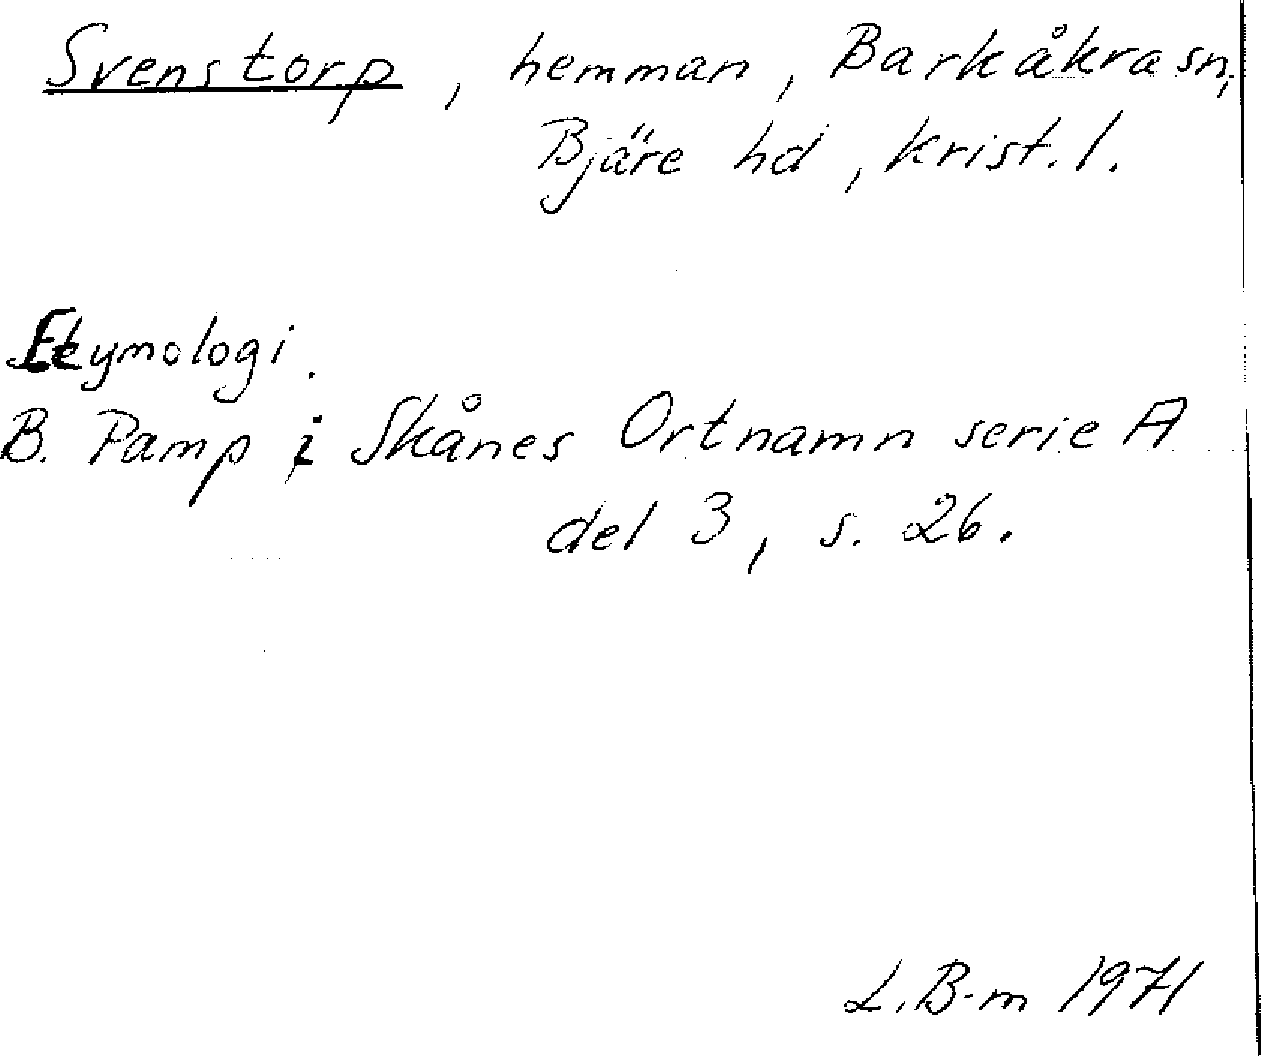 Svenstorp, hemman, Barkåkra sn,
Bjäre hd, Krist. l.
Etymologi.
B. Pamp i Skånes Ortnamn serie A
del 3, s. 26.
L.B-m 1971